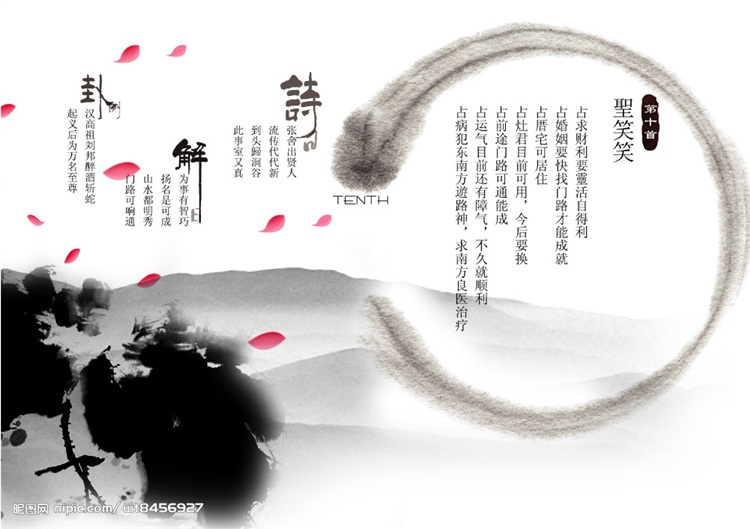 第十首
聖笑笑
占求财利要靈活自得利
占婚姻要快找门路才能成就
占厝宅可居住
占灶君目前可用，今后要换
占前途门路可通能成
占运气目前还有障气，不久就顺利
占病犯东南方遊路神，求南方良医治疗
TENTH
詩曰
张舍出贤人
流传代代新
到头歸洵谷
此事室又真
解曰
为事有智巧
扬名是可成
山水都明秀
门路可响通
卦例
汉高祖刘邦醉酒斩蛇
起义后为万名至尊
昵图网 nipic.com/wt8456927